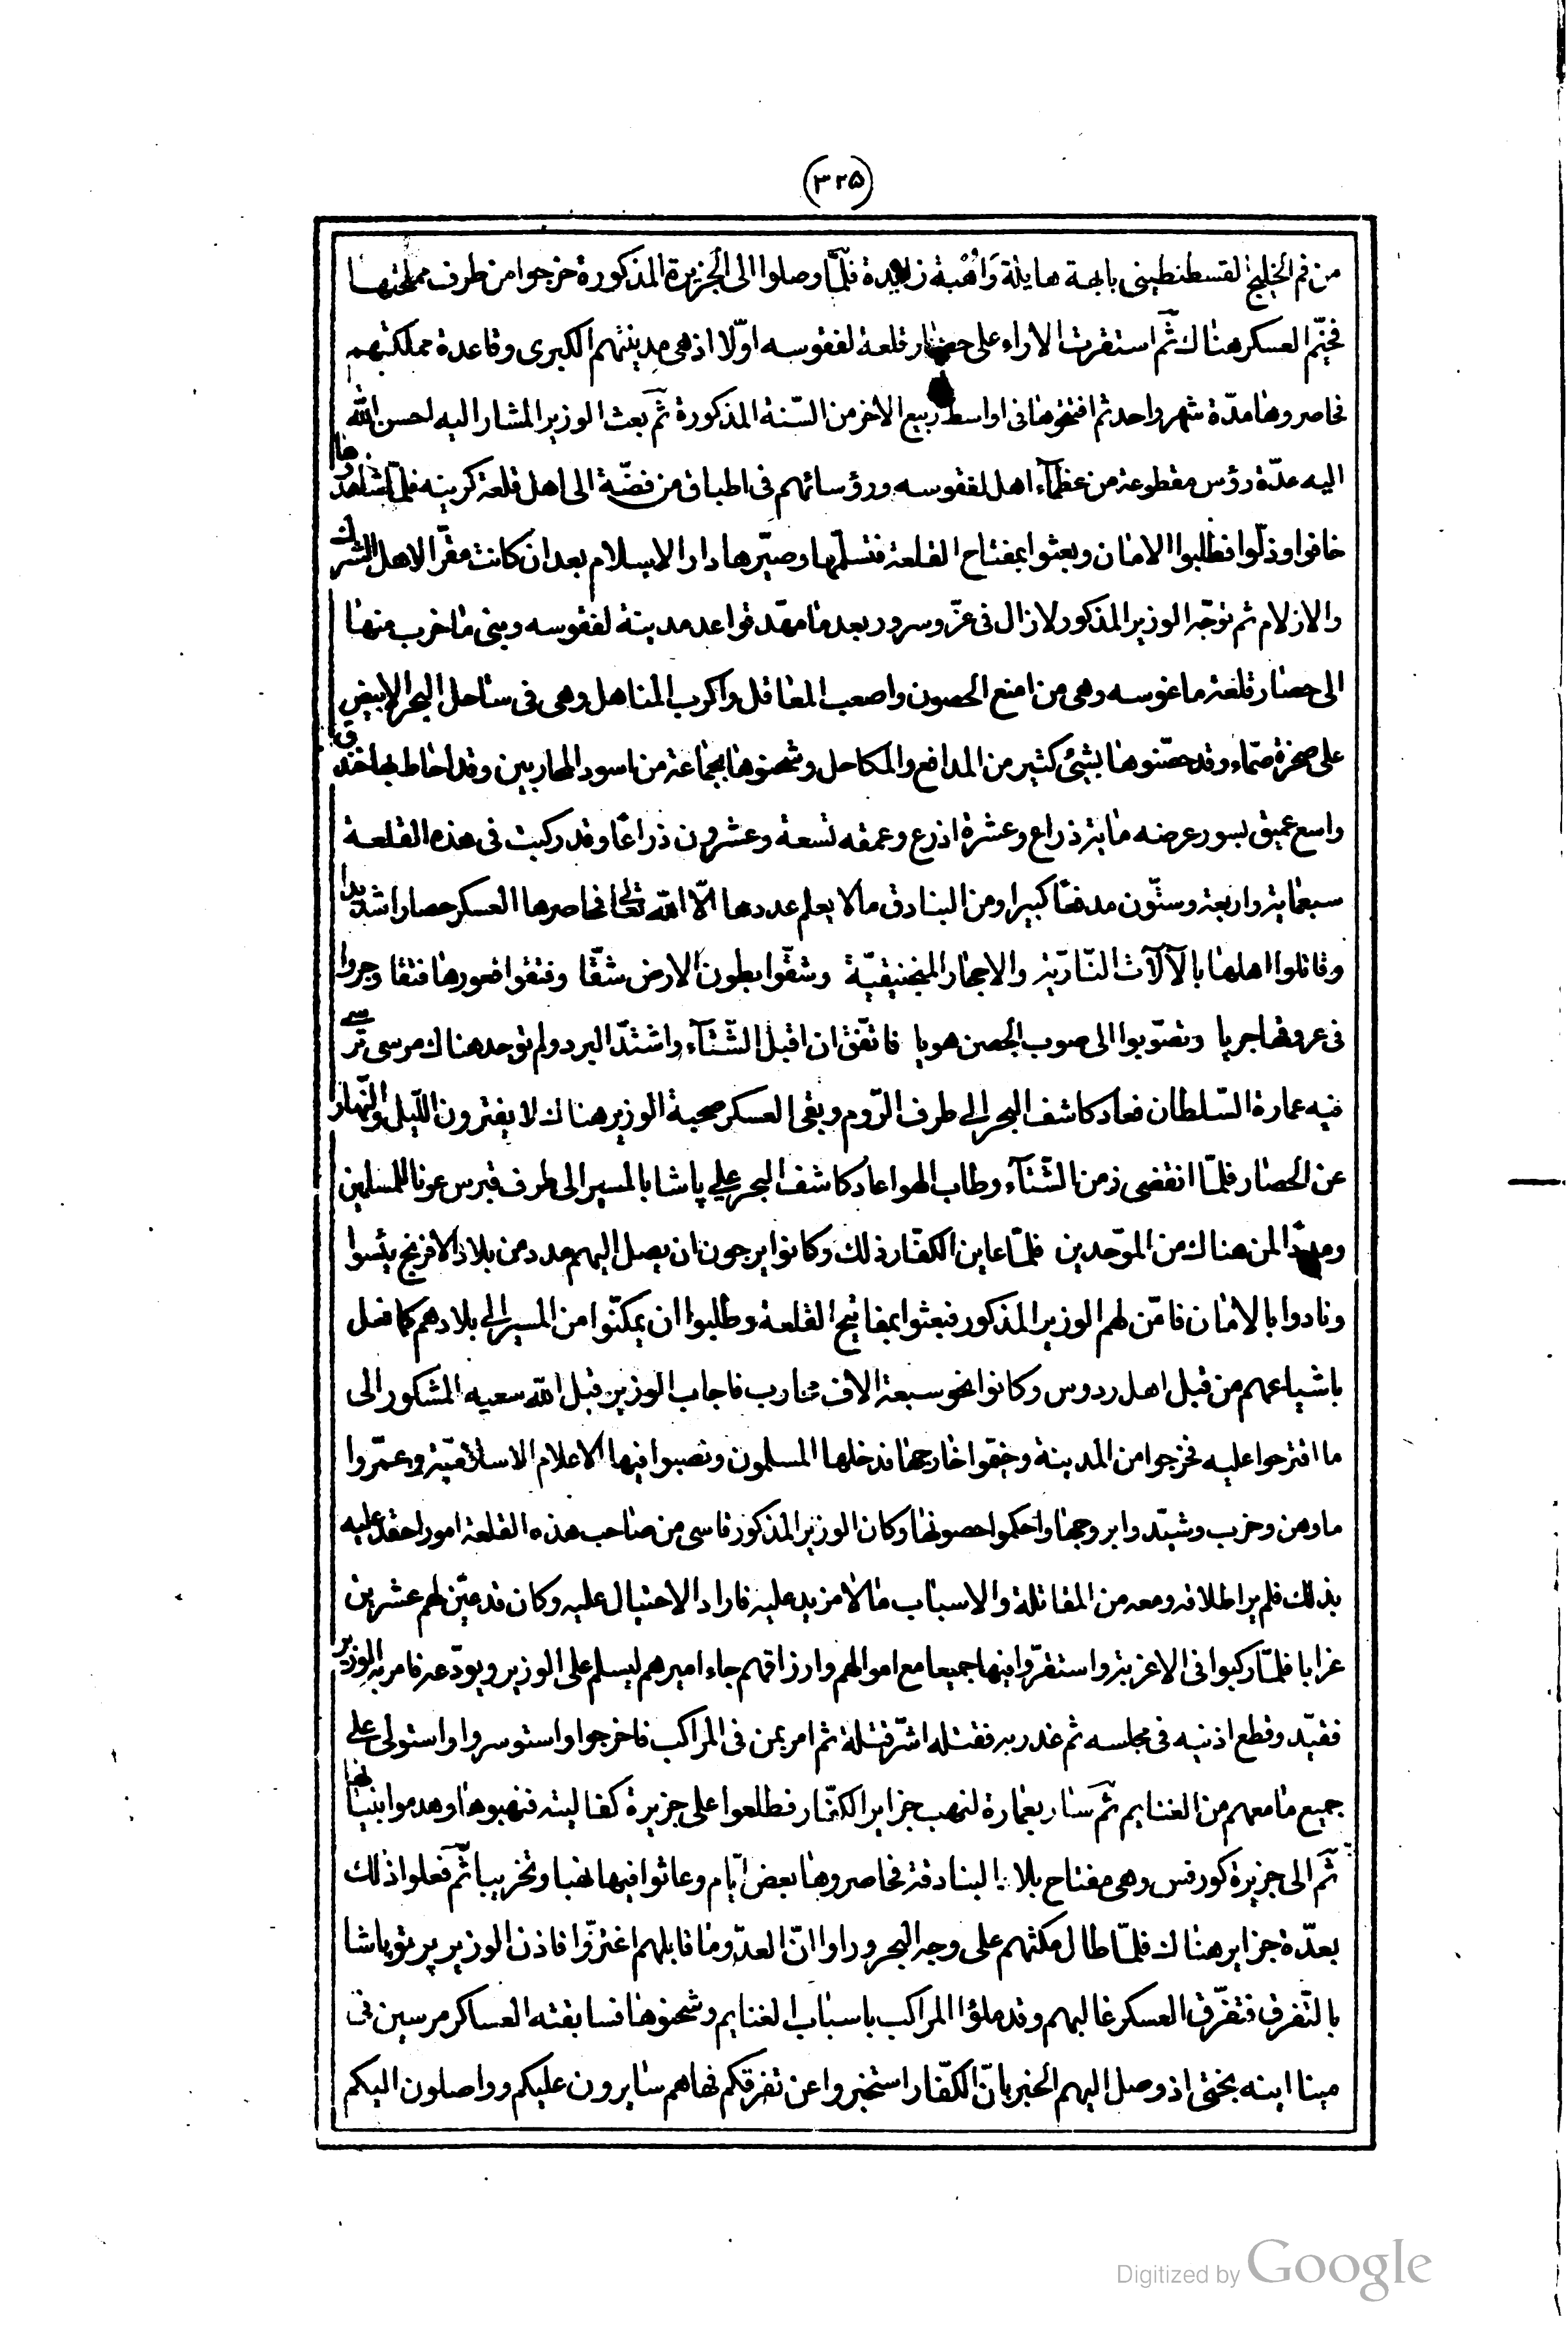 (٣٢٥)
من فم الخليج القسطنطيني بابهة هايلة وأهبة زايدة فلمّا وصلوا الى الجزيرة المذكورة خرجوا من طرف مملحتها
فخيّم العسكر هناك ثمّ استقرت الاراء على حصار قلعة لفقوسه اوّلا اذ هي مدينتهم الكبرى وقاعدة مملكتهم
فحاصروها مدّة شهر واحد ثم افتتحوها فى اواسط ربيع الاخر من السّنة المذكورة ثمّ بعث الوزير المشار اليه احسن الله
اليه عدّة رؤس مقطوعة من عظمآء اهل لفقوسه ورؤسائهم فى اطباق من فضّة الى اهل قلعة كرينه فلمّا شاهدوها
خافوا وذلّوا فطلبوا الامان وبعثوا بمفتاح القلعة فتسلّمها وصيّرها دار الاسلام بعد ان كانت مقرّا لاهل الشرك
والازلام ثم توجّه الوزير المذكور لازال فى عزّ وسرور بعد ما مهّد قواعد مدينة لفقوسه وبنى ما خرب منها
الى حصار قلعة ماغوسه وهى من امنع الحصون واصعب المعاقل واكرب المناهل وهى فى ساحل البحر الابيض
على صخرة صمّاء وقد حصّنوها بشئ كثير من المدافع والمكاحل وشحنوها بجماعة من اسود المحاربين وقد احاط بها خندق
واسع عميق بسور عرضه مائة ذراع وعشرة اذرع وعمقه تسعة وعشرون ذراعًا وقد ركبت فى هذه القلعة
سبعمائة واربعة وستّون مدفعًا كبيرا ومن البنادق ما لا يعلم عددها الّا الله تعالى فحاصرها العسكر حصارا شديدا
وقاتلوا اهلها بالآلآت النّاريّة والاحجار المنجنيقيّة وشقّوا بطون الارض شقّا وفتقوا ضعورها فتقا وجروا
فى عروقها جريا وتصوّبوا الى صوب الحصن هويا فاتّفق ان اقبل الشّتآء واشتدّ البرد ولم توجد هناك مرسى ترسى
فيه عمارة السّلطان فعاد كاشف البحر الى طرف الرّوم وبقى العسكر صحبة الوزير هناك لا يفترون اللّيل والنّهار
عن الحصار فلمّا انقضى زمن الشّتآء وطاب الهوا عاد كاشف البحر على پاشا بالمسير الى طرف قبرس عونا للمسلمين
ومددًا لمن هناك من الموّحدين فلمّا عاين الكفّار ذلك وكانوا يرجون ان يصل اليهم مدد من بلاد الافرنج يئسوا
ونادوا بالامان فامّن لهم الوزير المذكور فبعثوا بمفاتيح القلعة وطلبوا ان يمكنّوا من المسير الى بلادهم كما فعل
باشياعهم من قبل اهل ردوس وكانوا نحو سبعة الاف محارب فاجاب الوزير قبل الله سعيه المشكور الى
ما اقترحوا عليه فخرجوا من المدينة وخيّموا خارجها فدخلها المسلمون ونصبوا فيها الاعلام الاسلاميّة وعمّروا
ما وهن وخرب وشيّدوا بروجها واحكموا حصونها وكان الوزير المذكور قاسى من صاحب هذه القلعة امورا حقد عليه
بذلك فلم ير اطلاقه ومعه من المقاتلة والاسباب ما لا مزيد عليه فاراد الاحتيال عليه وكان قد عيّن لهم عشرين
غرابا فلمّا ركبوا فى الاغربة واستقرّوا فيها جميعا مع اموالهم وارزاقهم جاء اميرهم ليسلم على الوزير ويودّعه فامر به الوزير
فقيّد وقطع اذنيه فى مجلسه ثم غدر به فقتله اشرّ قتلة ثم امر بمن فى المراكب فاخرجوا واستوسروا واستولى على
جميع ما معهم من الغنايم ثمّ سار بعمارة لنهب جزاير الكفّار فطلعوا على جزيرة كفاليته فنهبوها وهدموا بنيانها
ثمّ الى جزيرة كورفس وهى مفتاح بلاد البنادقة فحاصروها بعض ايّام وعاثوا فيها نهبا وتخريبا ثمّ فعلوا ذلك
بعدّة جزاير هناك فلمّا طال مكثهم على وجه البحر وراوا انّ العدّو ما قابلهم اغترّوا فاذن الوزير پرتو پاشا
بالتّفرق فتفرّق العسكر غالبهم وقد ملؤا المراكب باسباب الغنايم وشحنوها فسابقته العساكر مرسين فى
مينا اينه بختى اذ وصل اليهم الخبر بانّ الكفّار استخبروا عن تفرقكم فها هم سايرون عليكم وواصلون اليكم
Digitized by Google